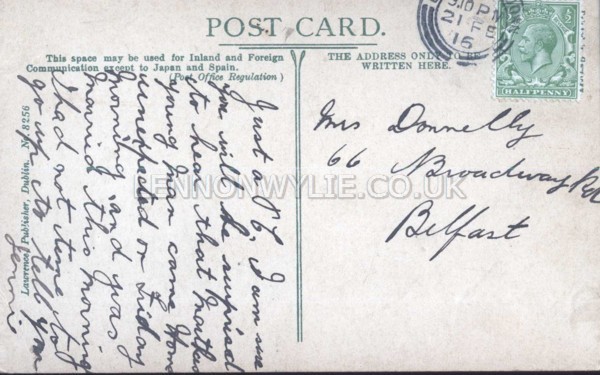 POST CARD.
This space may be used for Inland and Foreign
Communication except to Japan and Spain.
(Post Office Regulation)
THE ADDRESS ONLY TO BE
WRITTEN HERE.
PM
21 FE
16
HALFPENNY
Just a P.C. I am sure
you will be surprised
to hear that Marthas
young man came Home
unexpected on Friday
morning and was
married this morning
I had not time to
go up to tell you
Jennie
Mrs Donnelly
66 Broadway Rd
Belfast
Lawrence, Publisher, Dublin. No. 8256
PENNONWYLIE.CO.UK